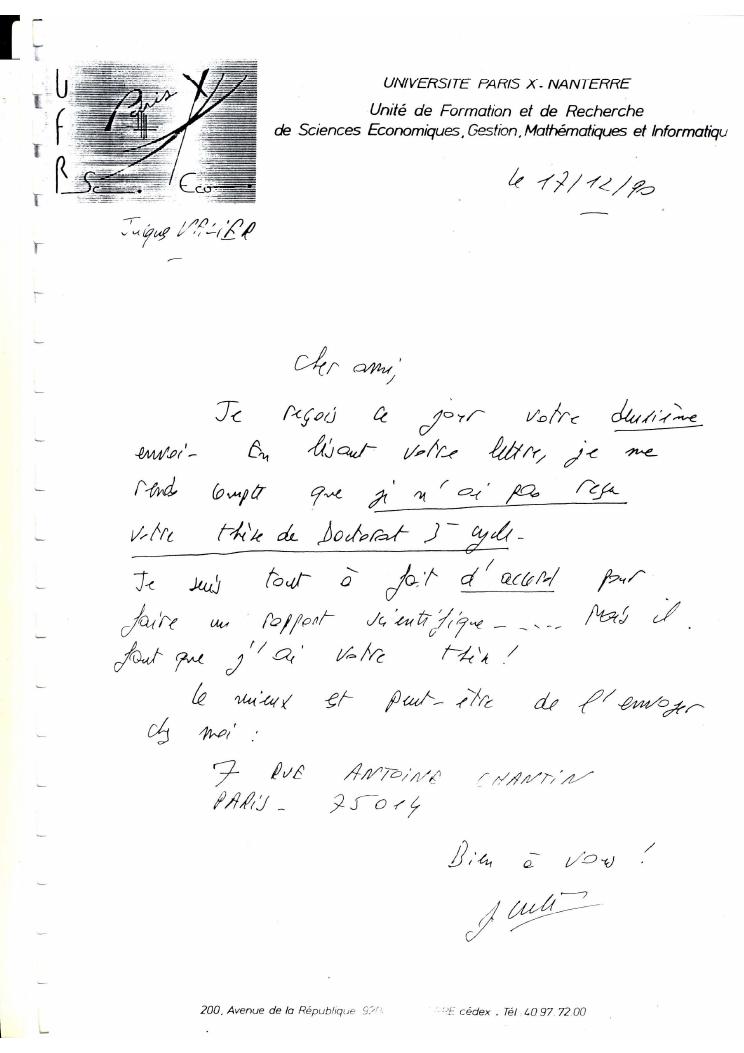 UFR
Paris X
Sc. Eco
UNIVERSITE PARIS X - NANTERRE
Unité de Formation et de Recherche
de Sciences Economiques, Gestion, Mathématiques et Informatiqu
le 17/12/90
Jacques VALIER
Cher ami,
Je reçois ce jour votre deuxième
envoi - En lisant votre lettre, je me
rends compte que je n'ai pas reçu
votre thèse de Doctorat 3e cycle -
Je suis tout à fait d'accord pour
faire un rapport scientifique - .... Mais il
faut que j'ai votre thèse !
Le mieux est peut-être de l'envoyer
chez moi :
7 RUE ANTOINE CHANTIN
PARIS - 75014
Bien à vous !
200, Avenue de la République cédex . Tél . 40 97.72.00